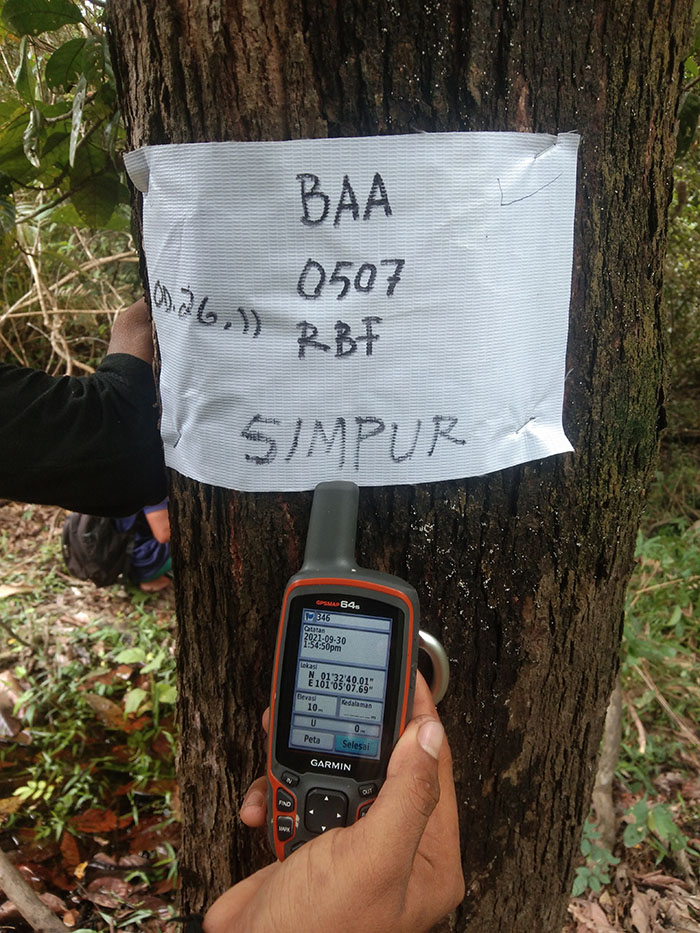 BAA
0507
00.26.11
RBF
SIMPUR
GPSMAP 64s
346
Catatan
2021-09-30
1:54:50pm
Lokasi
N 01°32'40.01"
E 101°05'07.69"
Elevasi
Kedalaman
10m
U
0m
Peta
Selesai
GARMIN
IN
OUT
FIND
MARK